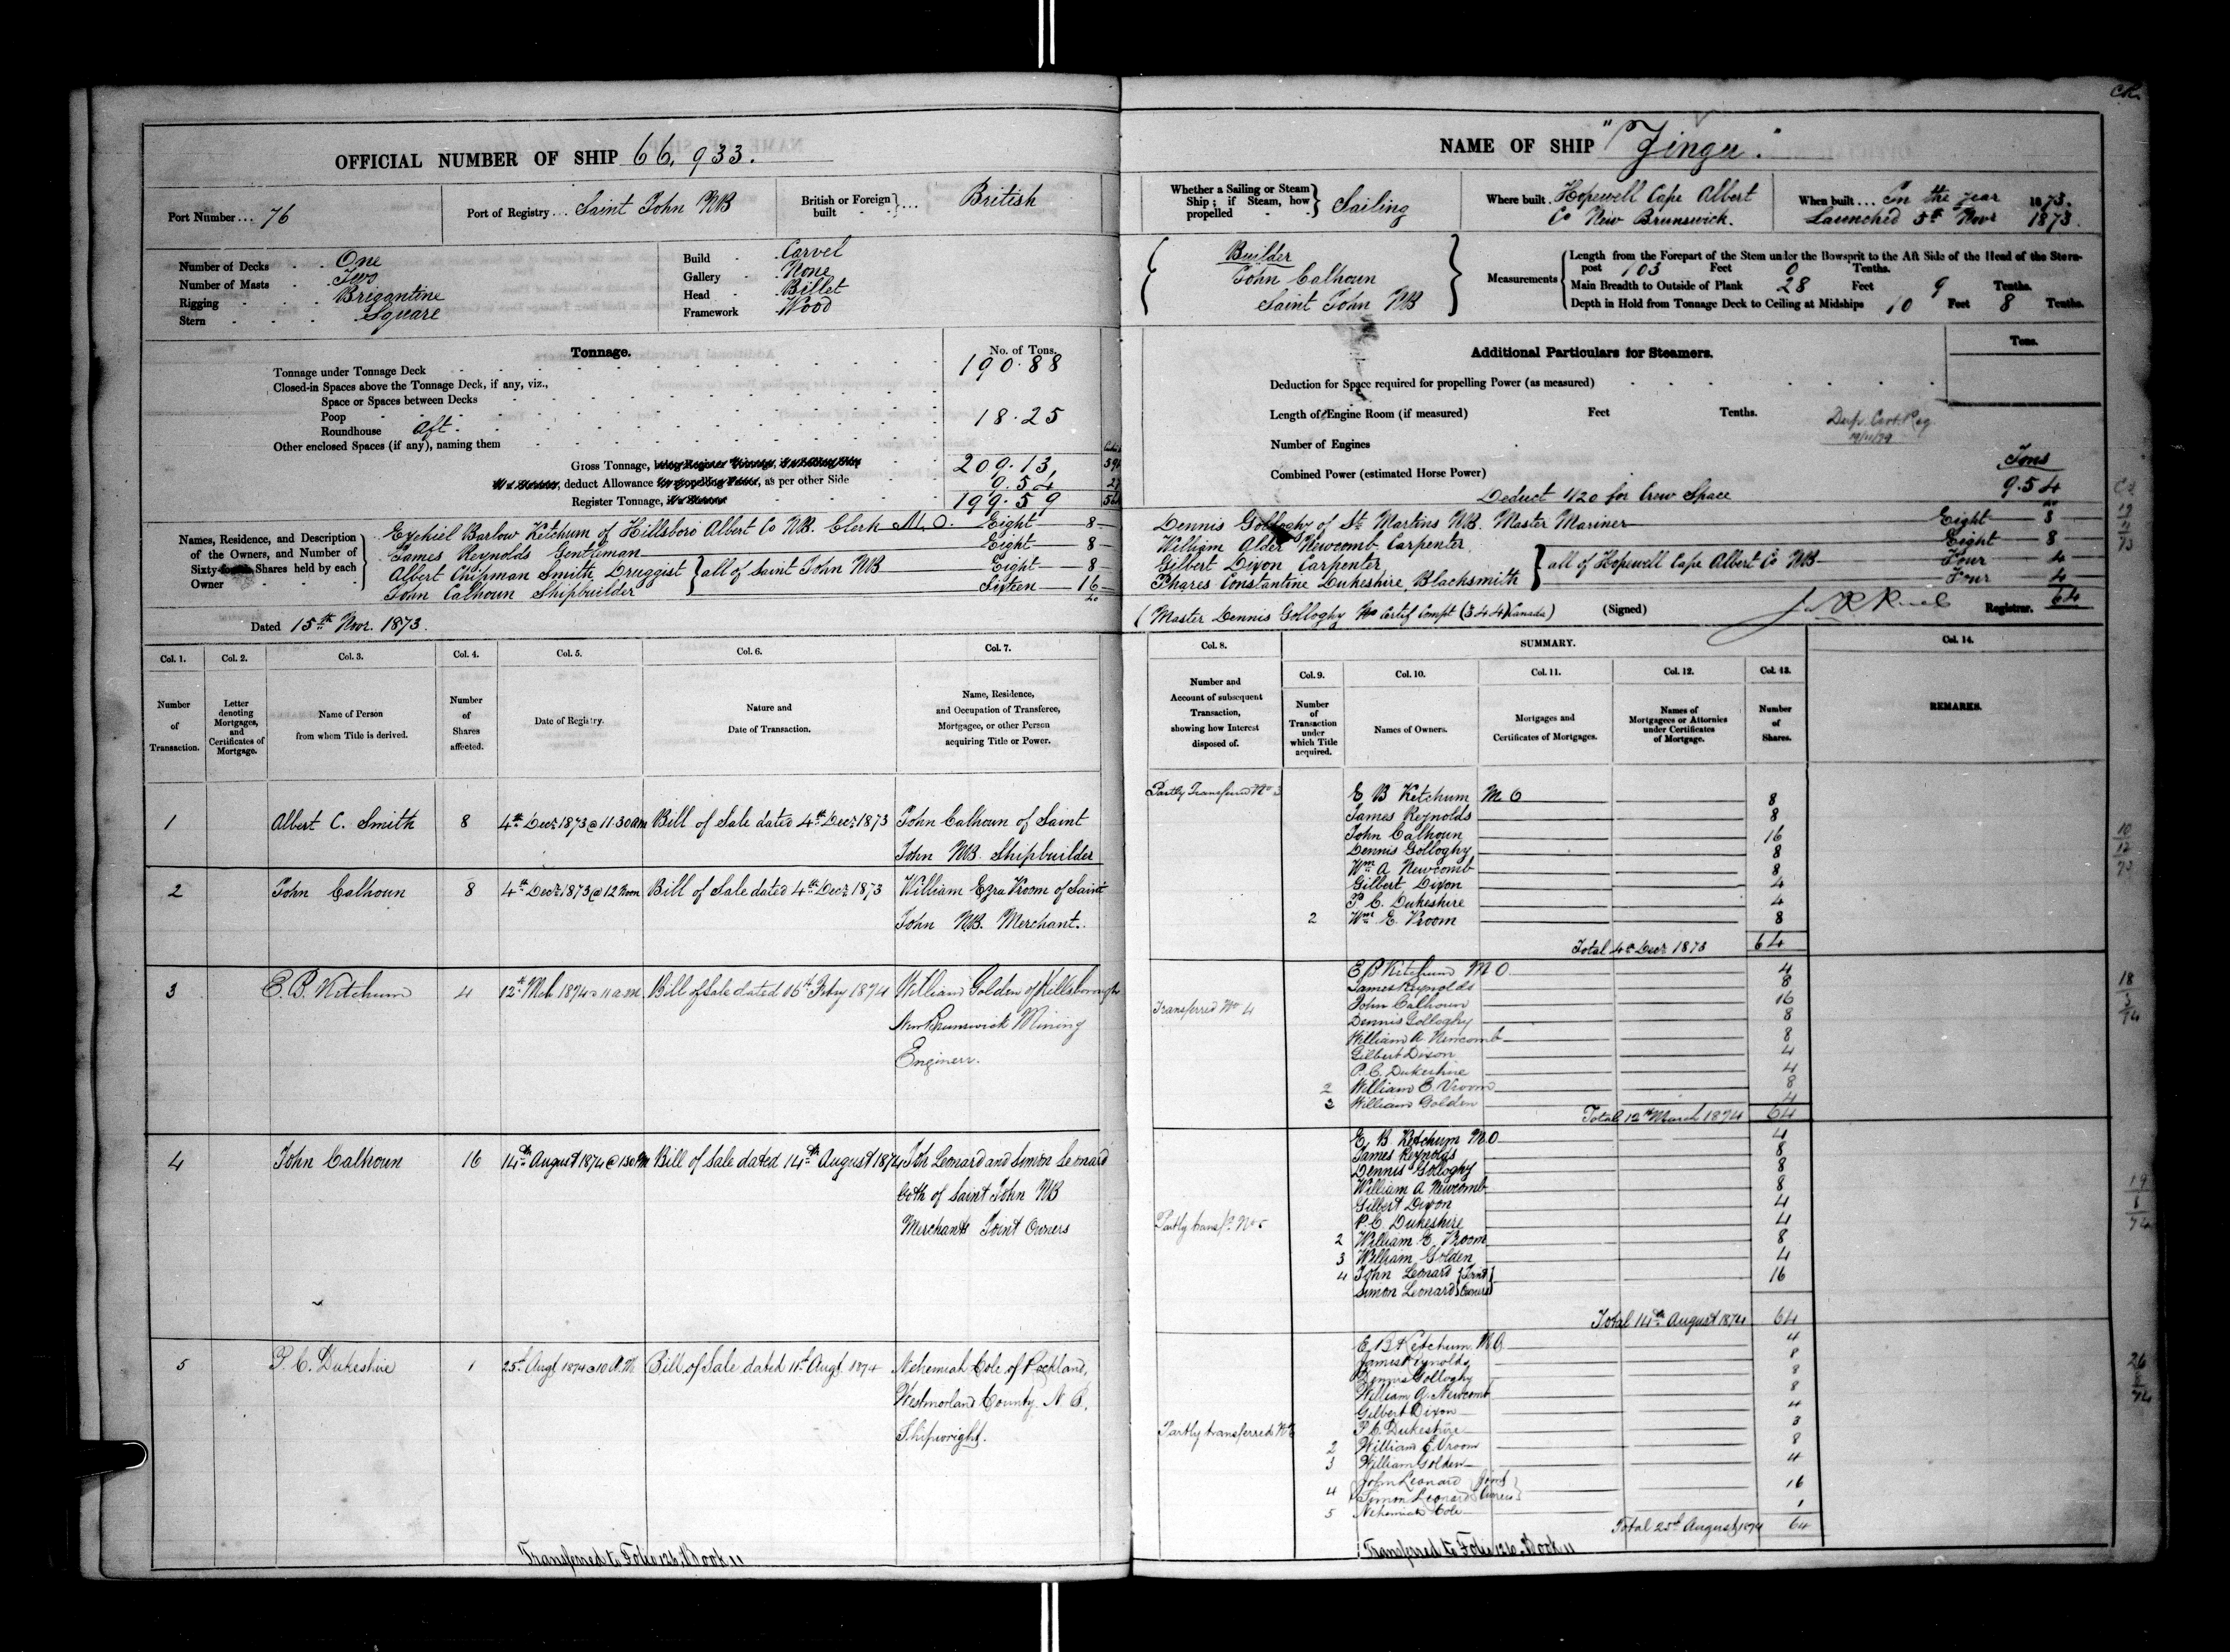 OFFICIAL NUMBER OF SHIP 66,933.
Port Number ... 76
Port of Registry ... Saint John NB
British or Foreign built } ... British
Number of Decks One
Number of Masts Two
Rigging Brigantine
Stern Square
Build Carvel
Gallery None
Head Billet
Framework Wood
Tonnage.
No. of Tons.
Tonnage under Tonnage Deck 190.88
Closed-in Spaces above the Tonnage Deck, if any, viz.,
Space or Spaces between Decks
Poop
Roundhouse aft 18.25
Other enclosed Spaces (if any), naming them
Gross Tonnage, 209.13
deduct Allowance as per other Side 9.54
Register Tonnage, 199.59
Names, Residence, and Description of the Owners, and Number of Sixty-fourth Shares held by each Owner
Ezekiel Barlow Ketchum of Hillsboro Albert Co NB. Clerk M.O. Eight 8
James Reynolds Gentleman Eight 8
Albert Chipman Smith Druggist } all of Saint John NB Eight 8
John Calhoun Shipbuilder Sixteen 16
40
Dated 15th Novr. 1873.
Col. 1. Col. 2. Col. 3. Col. 4. Col. 5. Col. 6. Col. 7.
Number of Transaction.
Letter denoting Mortgages, and Certificates of Mortgage.
Name of Person from whom Title is derived.
Number of Shares affected.
Date of Registry.
Nature and Date of Transaction.
Name, Residence, and Occupation of Transferee, Mortgagee, or other Person acquiring Title or Power.
1 Albert C. Smith 8 4th Decr 1873 @ 11.30 am Bill of Sale dated 4th Decr 1873 John Calhoun of Saint
John NB. Shipbuilder
2 John Calhoun 8 4th Decr 1873 @ 12 Noon Bill of Sale dated 4th Decr 1873 William Ezra Vroom of Saint
John NB. Merchant.
3 E. B. Ketchum 4 12th Mch 1874 @ 11 a.m. Bill of Sale dated 16th Feby 1874 William Golden of Hillsborough
New Brunswick Mining
Engineer.
4 John Calhoun 16 14th August 1874 @ 1.30 Pm Bill of Sale dated 14th August 1874 John Leonard and Simon Leonard
both of Saint John NB
Merchants Joint Owners
5 P. C. Dukeshire 1 25th Augt 1874 @ 10 A.M Bill of Sale dated 11th Augt 1874 Nehemiah Cole of Rockland,
Westmorland County. N. B.
Shipwright.
Transferred to Folio 126, Book 11
NAME OF SHIP "Zinga".
Whether a Sailing or Steam Ship; if Steam, how propelled } Sailing
Where built. Hopewell Cape Albert
Co New Brunswick.
When built ... In the year 1873.
Launched 5th Novr 1873.
Builder
John Calhoun
Saint John NB
Measurements
Length from the Forepart of the Stem under the Bowsprit to the Aft Side of the Head of the Stern-
post 103 Feet 0 Tenths.
Main Breadth to Outside of Plank 28 Feet 9 Tenths.
Depth in Hold from Tonnage Deck to Ceiling at Midships 10 Feet 8 Tenths.
Additional Particulars for Steamers.
Tons.
Deduction for Space required for propelling Power (as measured)
Length of Engine Room (if measured) Feet Tenths.
Dup. Cert. Reg
Number of Engines
Combined Power (estimated Horse Power)
Tons
Deduct 1/20 for Crew Space 9.54
Dennis Golloghy of St Martins NB. Master Mariner Eight 8
William Alder Newcomb Carpenter Eight 8
Gilbert Dixon Carpenter } all of Hopewell Cape Albert Co NB Four 4
Phares Constantine Dukeshire, Blacksmith Four 4
(Master Dennis Golloghy No Certif Compt (344) Canada) (Signed) Registrar. 64
Col. 8. SUMMARY. Col. 14.
Col. 9. Col. 10. Col. 11. Col. 12. Col. 13.
Number and Account of subsequent Transaction, showing how Interest disposed of.
Number of Transaction under which Title acquired.
Names of Owners.
Mortgages and Certificates of Mortgages.
Names of Mortgagees or Attornies under Certificates of Mortgage.
Number of Shares.
REMARKS.
Partly Transferred No 3
E B Ketchum M O 8
James Reynolds 8
John Calhoun 16
Dennis Golloghy 8
Wm A Newcomb 8
Gilbert Dixon 4
P C. Dukeshire 4
2 Wm E. Vroom 8
Total 4th Decr 1873 64
E B Ketchum M O 4
James Reynolds 8
Transferred No 4 John Calhoun 16
Dennis Golloghy 8
William A. Newcomb 8
Gilbert Dixon 4
P. C. Dukeshire 4
2 William E. Vroom 8
3 William Golden 4
Total 12th March 1874 64
E. B. Ketchum M.O 4
James Reynolds 8
Dennis Golloghy 8
William A Newcomb 8
Gilbert Dixon 4
Partly transfd. No 5 P. C Dukeshire 4
2 William E. Vroom 8
3 William Golden 4
4 John Leonard } Joint 16
Simon Leonard } Owners
Total 14th August 1874 64
E. B. Ketchum. M.O. 4
James Reynolds 8
Dennis Golloghy 8
William A. Newcomb 8
Gilbert Dixon 4
Partly transferred No P. C. Dukeshire 3
2 William E. Vroom 8
3 William Golden 4
4 John Leonard } Joint 16
Simon Leonard } Owners
5 Nehemiah Cole 1
Total 25th August 1874 64
Transferred to Folio 126, Book 11